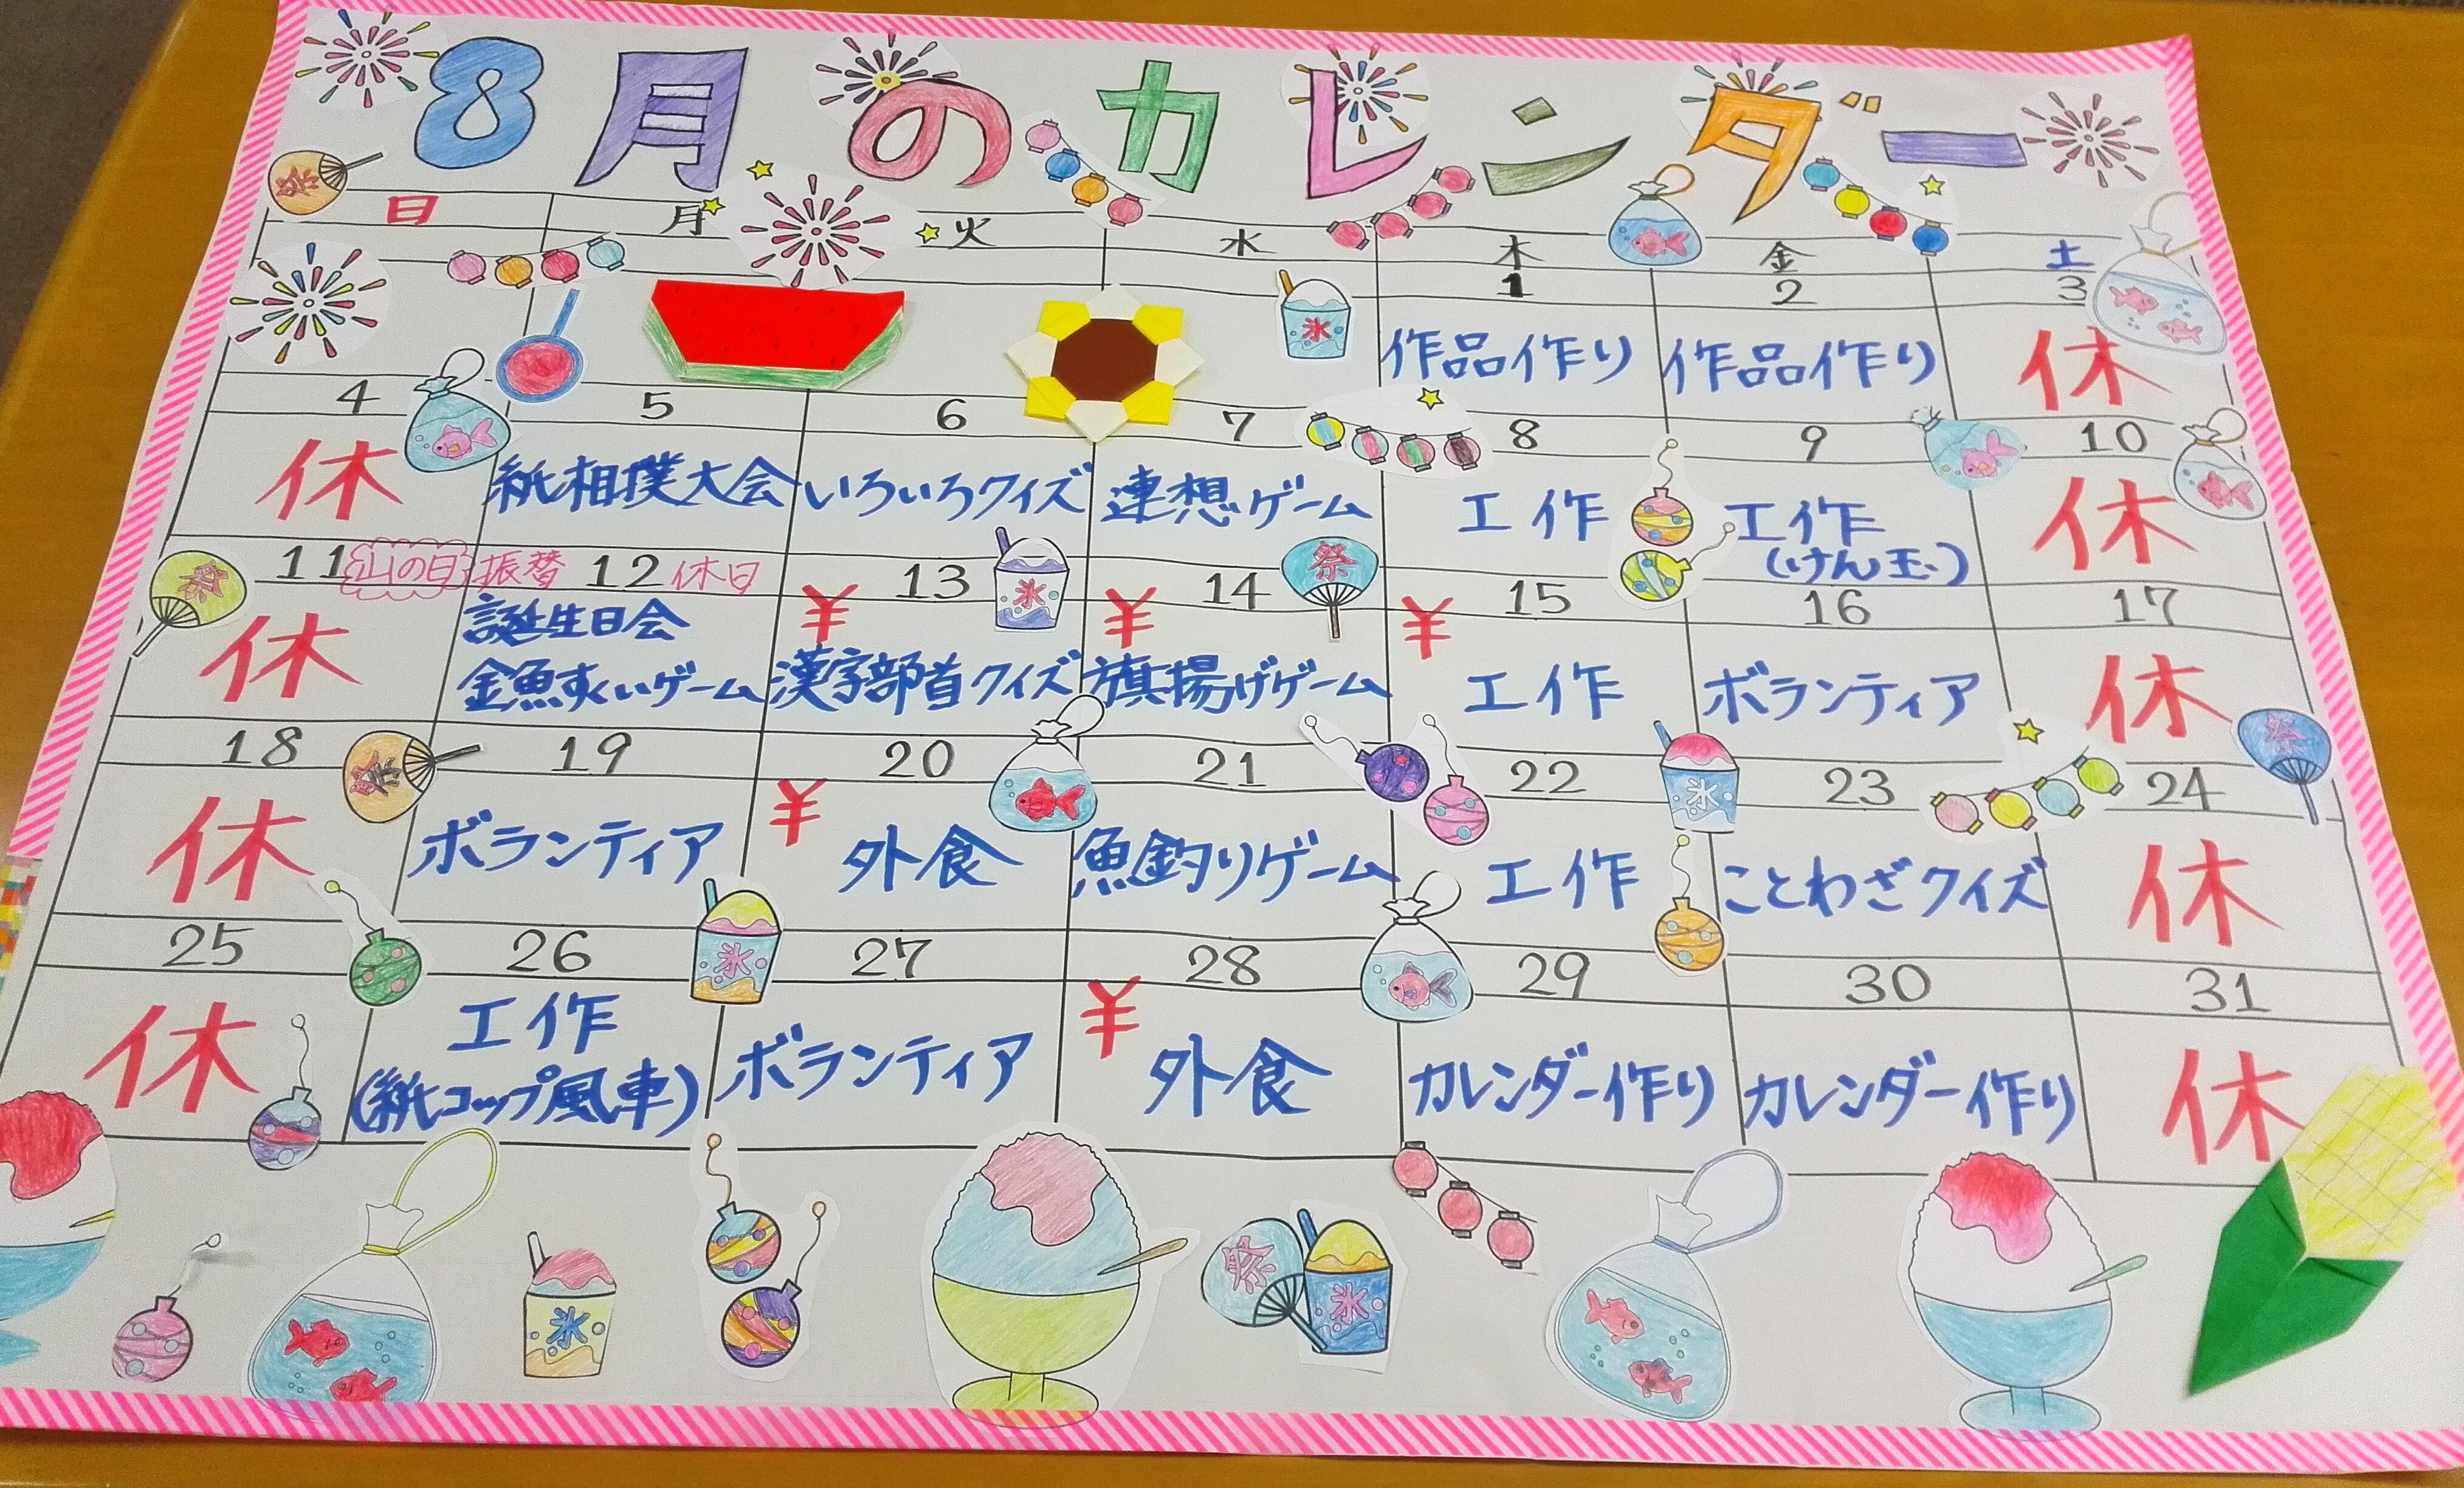 8月のカレンダー
日 月 火 水 木 金 土
1 2 3
作品作り 作品作り 休
4 5 6 7 8 9 10
休 紙相撲大会 いろいろクイズ 連想ゲーム 工作 工作 休
(けん玉)
11 山の日 振替 12 休日 13 14 15 16 17
休 誕生日会 ¥ ¥ ¥ 休
金魚すくいゲーム 漢字部首クイズ 旗揚げゲーム 工作 ボランティア
18 19 20 21 22 23 24
休 ボランティア ¥ 外食 魚釣りゲーム 工作 ことわざクイズ 休
25 26 27 28 29 30 31
休 工作 ボランティア ¥ 外食 カレンダー作り カレンダー作り 休
(紙コップ風車)
祭
氷
祭
氷
祭
祭
祭
氷
氷
氷
祭
氷